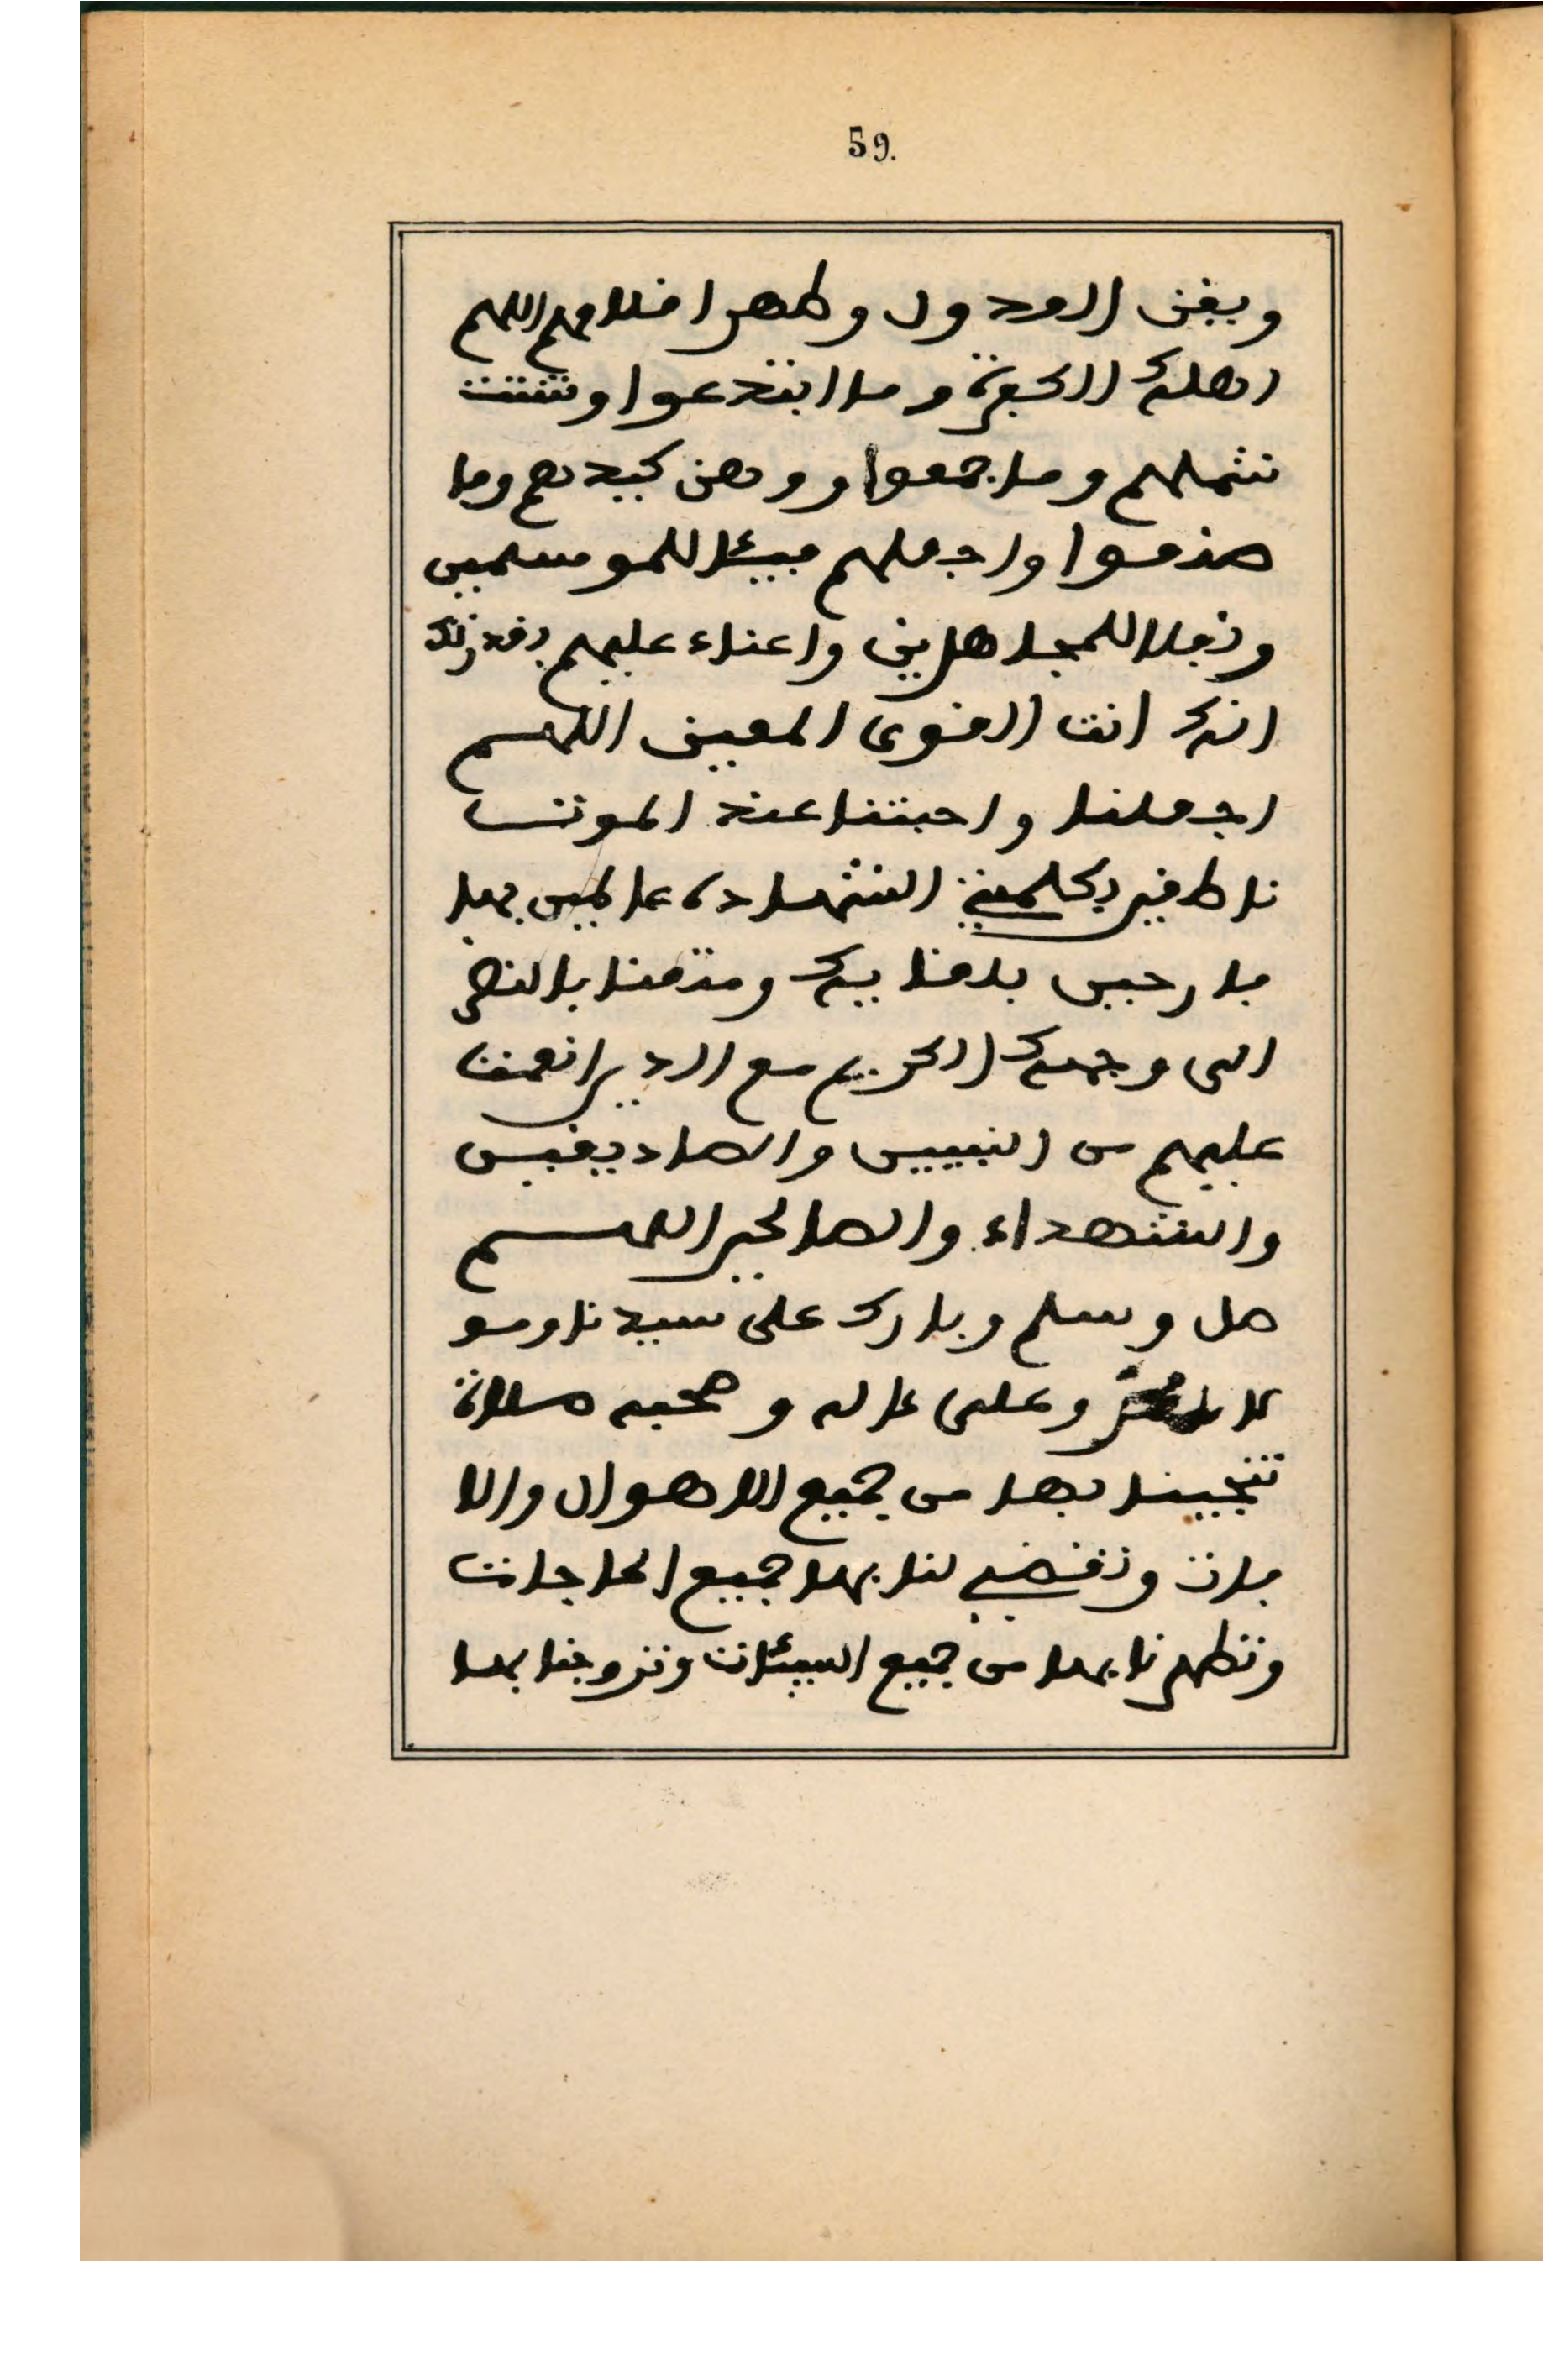 59.
ويفن العدول وطهر افلامهم اللهم
اهلك الكفرة وما ابتدعوا وشتت
شملهم وما جمعوا ووهن كيدهم وما
صنعوا واجعلهم فيئا للمو سلمين
ونفلا للمجاهدين واعناء عليهم بقدرتك
انك انت القوى المعين اللهم
اجعلنا واحبتنا عند الموت
ناطقين بكلمة الشهادة عالمين بها
فارحين بلقايك ومتعنا بالنظر
الى وجهك الكريم مع الذين انعمت
عليهم من النبيين والصاديقين
والشهداء والصالحين اللهم
صل وسلم وبارك على سيدنا ومو
لانا محمد وعلى ءاله وصحبه صلاة
تنجينا بها من جميع الاهوال والا
فات وتقضي لنا بها جميع الحاجات
وتطهرنا بها من جميع السيئات وتزوجنا بها